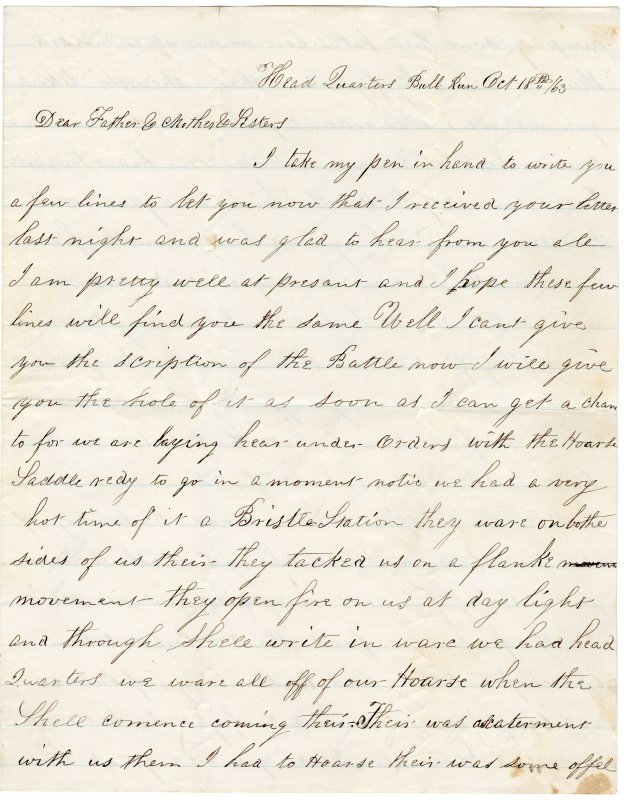 Head Quarters Bull Run Oct 18th/63
Dear Father & Mother & Sisters
I take my pen in hand to write you
a few lines to let you now that I received your letter
last night and was glad to hear from you all
I am pretty well at presant and I hope these few
lines will find you the same Well I cant give
you the scription of the Battle now I will give
you the hole of it as soon as I can get a chanc
to for we are laying hear under Orders with the Hoarse
Saddle redy to go in a moment notic we had a very
hot time of it a Bristle Station they ware on bothe
sides of us their they tacked us on a flanke
movement they open fire on us at day light
and through Shell write in ware we had head
Quarters we ware all off of our Hoarse when the
Shell comence coming their Their was
with us them I had to Hoarse their was some offel